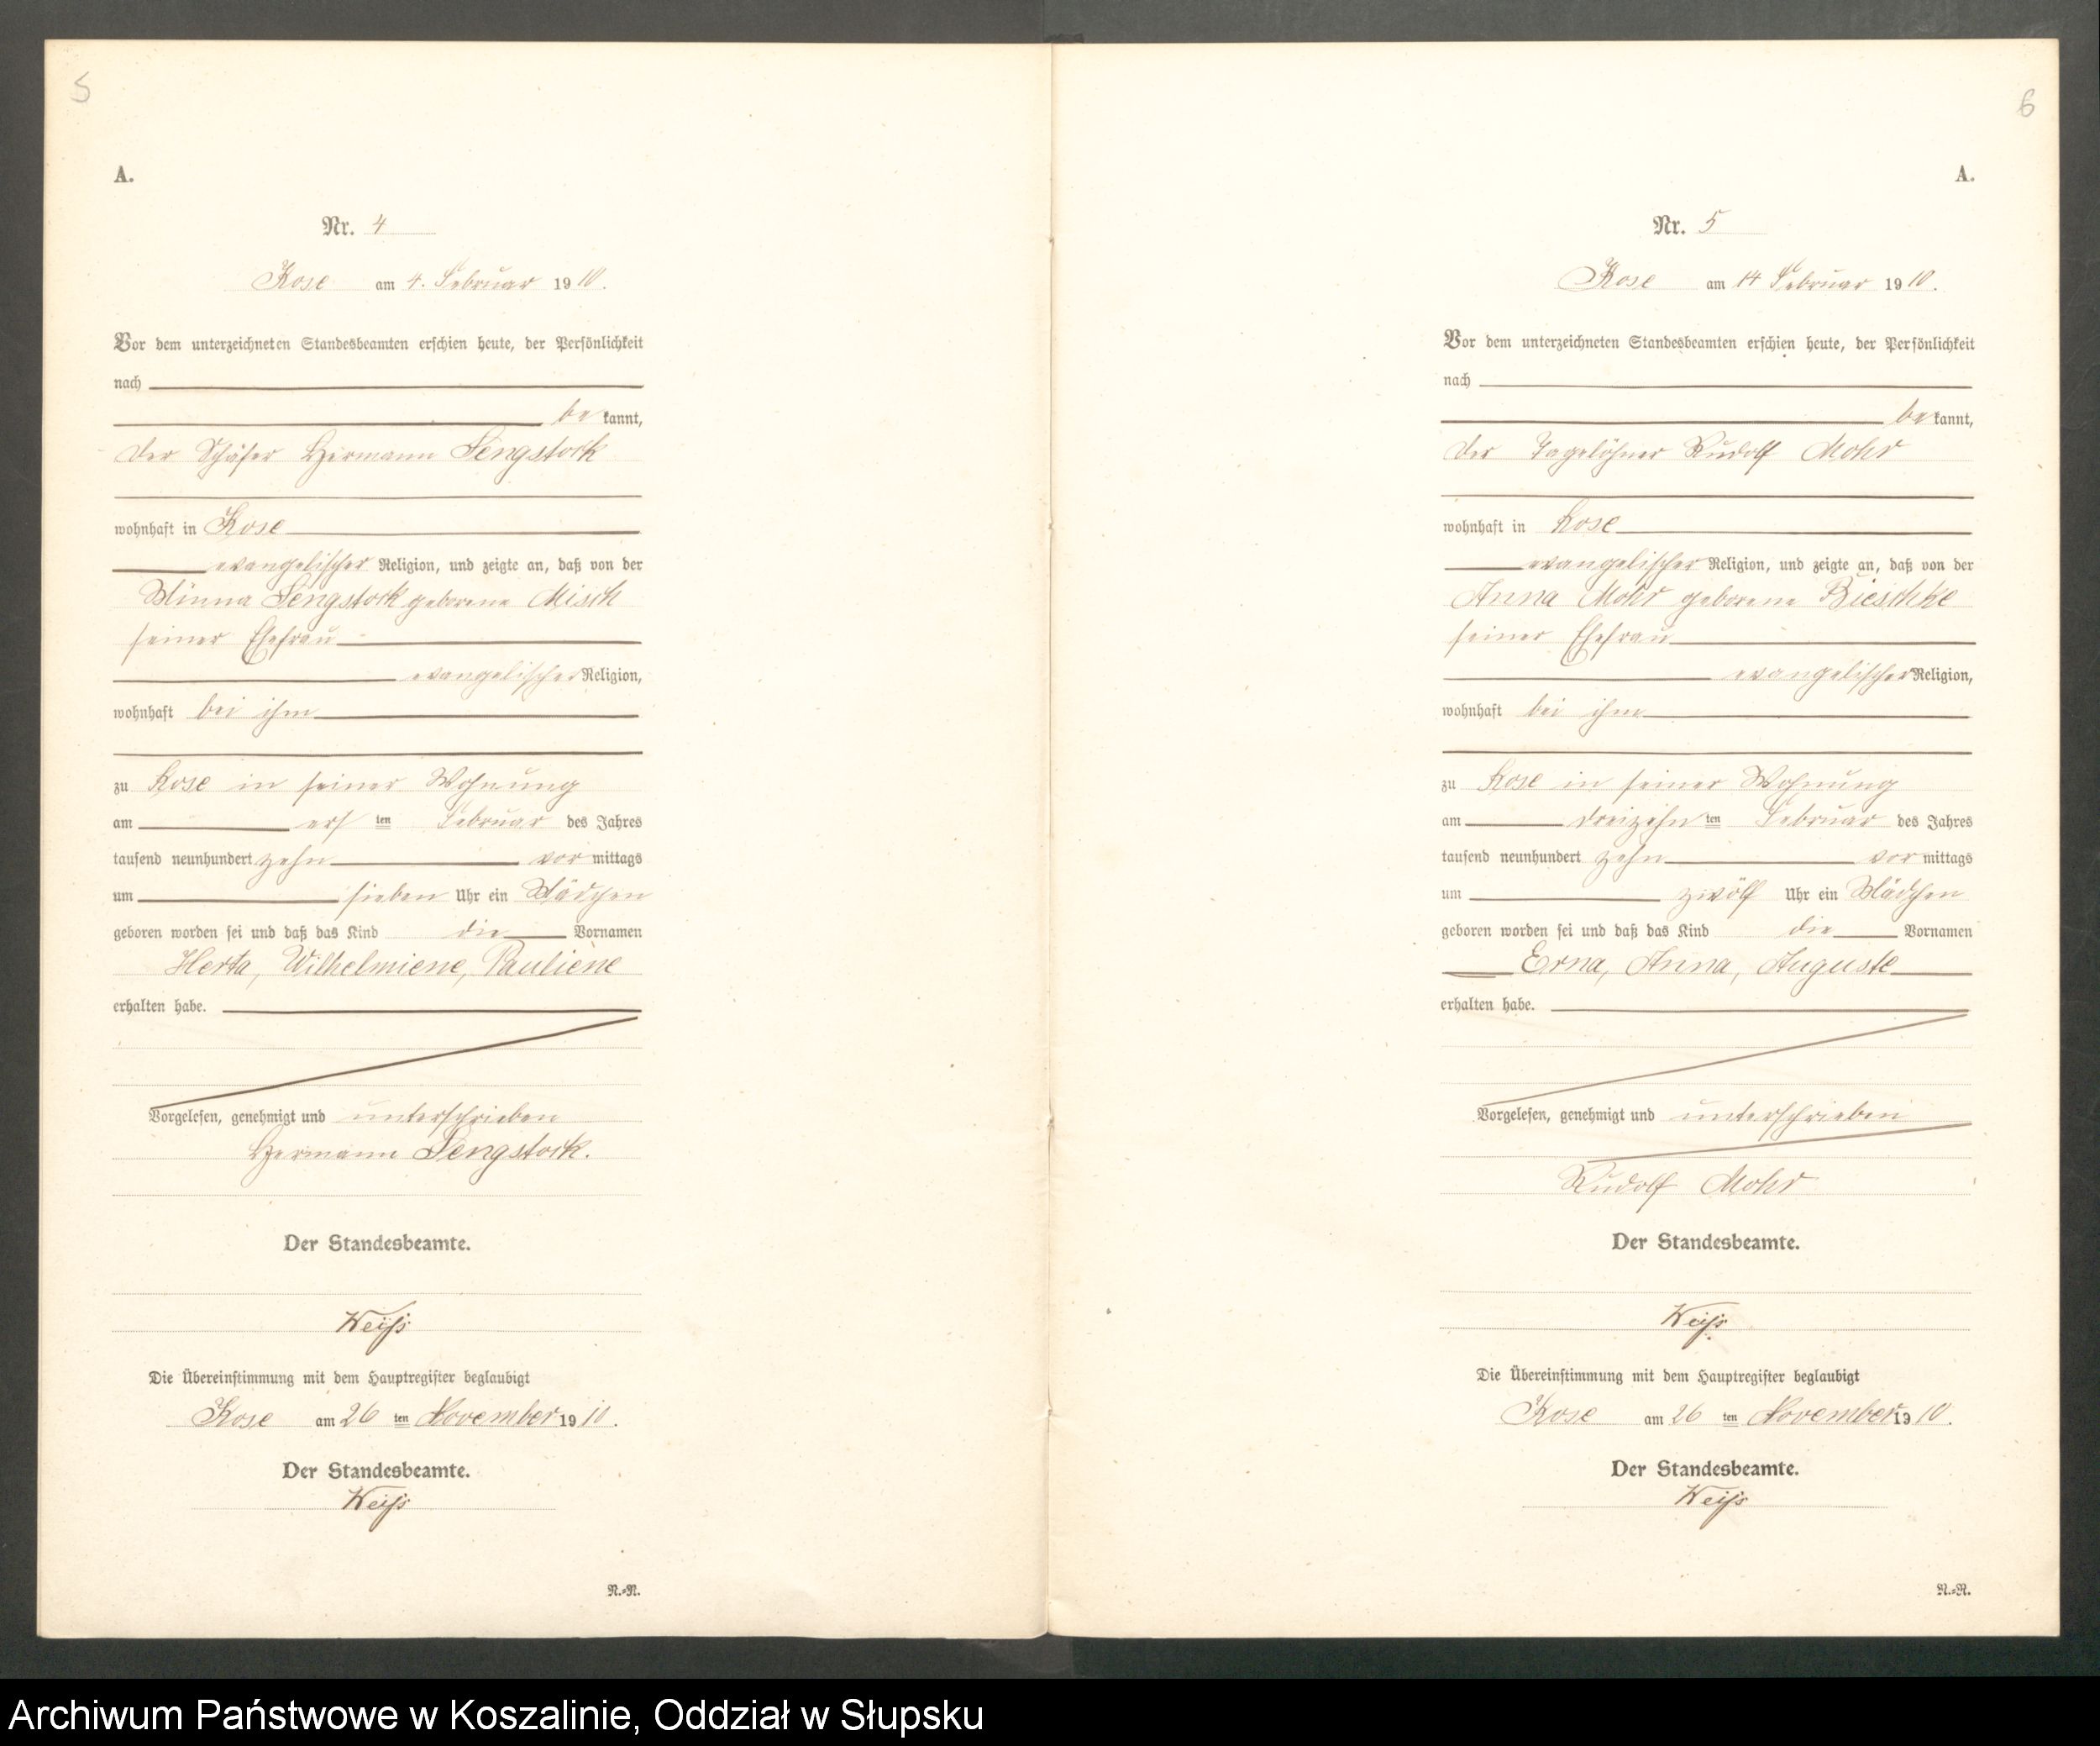 5
A.
Nr. 4
Kose am 4. Februar 1910.
Vor dem unterzeichneten Standesbeamten erschien heute, der Persönlichkeit
nach
bekannt,
der Schäfer Hermann Lengstock
wohnhaft in Kose
evangelischer Religion, und zeigte an, daß von der
Minna Lengstock geborene Misch
seiner Ehefrau
evangelischer Religion,
wohnhaft bei ihm
zu Kose in seiner Wohnung
am ersten Februar des Jahres
tausend neunhundert zehn vormittags
um sieben Uhr ein Mädchen
geboren worden sei und daß das Kind die Vornamen
Herta, Wilhelmiene, Pauliene
erhalten habe.
Vorgelesen, genehmigt und unterschrieben
Hermann Lengstock.
Der Standesbeamte.
Weiß
Die Übereinstimmung mit dem Hauptregister beglaubigt
Kose am 26ten November 1910.
Der Standesbeamte.
Weiß
N.-R.
6
A.
Nr. 5
Kose am 14 Februar 1910.
Vor dem unterzeichneten Standesbeamten erschien heute, der Persönlichkeit
nach
bekannt,
der Tagelöhner Rudolf Mohr
wohnhaft in Kose
evangelischer Religion, und zeigte an, daß von der
Anna Mohr geborene Bieschke
seiner Ehefrau
evangelischer Religion,
wohnhaft bei ihm
zu Kose in seiner Wohnung
am dreizehnten Februar des Jahres
tausend neunhundert zehn vormittags
um zwölf Uhr ein Mädchen
geboren worden sei und daß das Kind die Vornamen
Erna, Anna, Auguste
erhalten habe.
Vorgelesen, genehmigt und unterschrieben
Rudolf Mohr
Der Standesbeamte.
Weiß
Die Übereinstimmung mit dem Hauptregister beglaubigt
Kose am 26ten November 1910.
Der Standesbeamte.
Weiß
N.-R.
Archiwum Państwowe w Koszalinie, Oddział w Słupsku